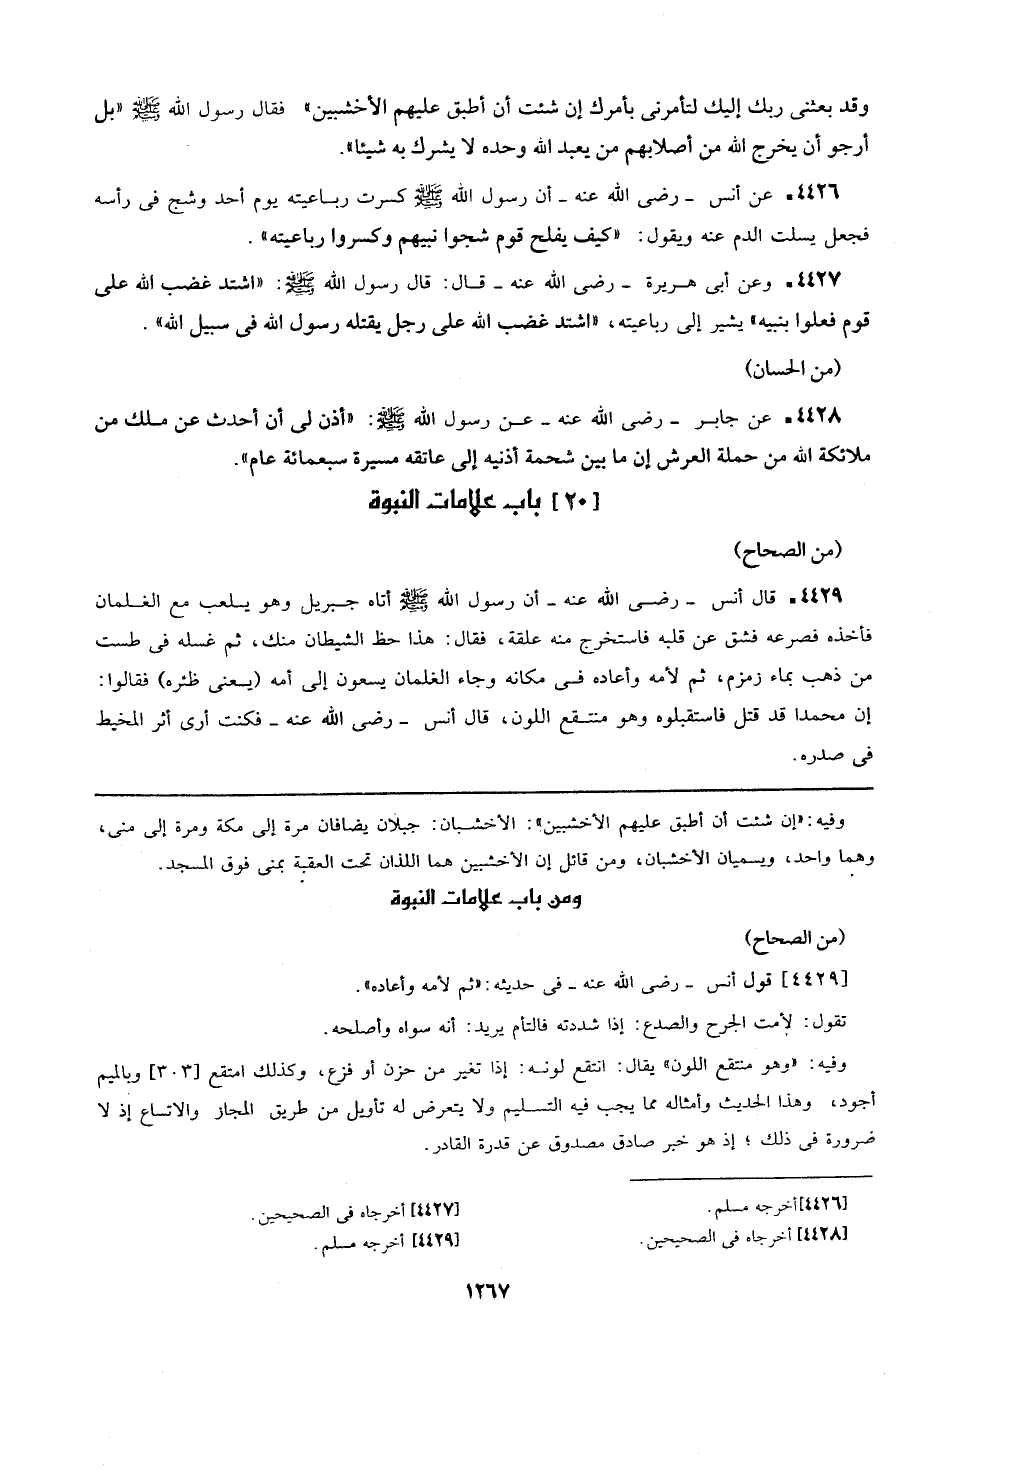 وقد بعثنى ربك إليك لتأمرنى بأمرك إن شئت أن أطبق عليهم الأخشبين» فقال رسول الله ﷺ «بل
أرجو أن يخرج الله من أصلابهم من يعبد الله وحده لا يشرك به شيئا».
٤٤٢٦. عن أنس ـ رضى الله عنه ـ أن رسول الله ﷺ كسرت رباعيته يوم أحد وشج فى رأسه
فجعل يسلت الدم عنه ويقول: «كيف يفلح قوم شجوا نبيهم وكسروا رباعيته».
٤٤٢٧. وعن أبى هريرة ـ رضى الله عنه ـ قال: قال رسول الله ﷺ: «اشتد غضب الله على
قوم فعلوا بنبيه» يشير إلى رباعيته، «اشتد غضب الله على رجل يقتله رسول الله فى سبيل الله».
(من الحسان)
٤٤٢٨. عن جابر ـ رضى الله عنه ـ عن رسول الله ﷺ: «أذن لى أن أحدث عن ملك من
ملائكة الله من حملة العرش إن ما بين شحمة أذنيه إلى عاتقه مسيرة سبعمائة عام».
[٢٠] باب علامات النبوة
(من الصحاح)
٤٤٢٩. قال أنس ـ رضى الله عنه ـ أن رسول الله ﷺ أتاه جبريل وهو يلعب مع الغلمان
فأخذه فصرعه فشق عن قلبه فاستخرج منه علقة، فقال: هذا حظ الشيطان منك، ثم غسله فى طست
من ذهب بماء زمزم، ثم لأمه وأعاده فى مكانه وجاء الغلمان يسعون إلى أمه (يعنى ظئره) فقالوا:
إن محمدا قد قتل فاستقبلوه وهو منتقع اللون، قال أنس ـ رضى الله عنه ـ فكنت أرى أثر المخيط
فى صدره.
وفيه: «إن شئت أن أطبق عليهم الأخشبين»: الأخشبان: جبلان يضافان مرة إلى مكة ومرة إلى منى،
وهما واحد، ويسميان الأخشبان، ومن قائل إن الأخشبين هما اللذان تحت العقبة بمنى فوق المسجد.
ومن باب علامات النبوة
(من الصحاح)
[٤٤٢٩] قول أنس ـ رضى الله عنه ـ فى حديثه: «ثم لأمه وأعاده».
تقول: لأمت الجرح والصدع: إذا شددته فالتأم يريد: أنه سواه وأصلحه.
وفيه: «وهو منتقع اللون» يقال: انتقع لونه: إذا تغير من حزن أو فزع، وكذلك امتقع [٣٠٣] وبالميم
أجود، وهذا الحديث وأمثاله مما يجب فيه التسليم ولا يتعرض له تأويل من طريق المجاز والاتساع إذ لا
ضرورة فى ذلك ؛ إذ هو خبر صادق مصدوق عن قدرة القادر.
[٤٤٢٦] أخرجه مسلم.
[٤٤٢٧] أخرجاه فى الصحيحين.
[٤٤٢٨] أخرجاه فى الصحيحين.
[٤٤٢٩] أخرجه مسلم.
١٢٦٧